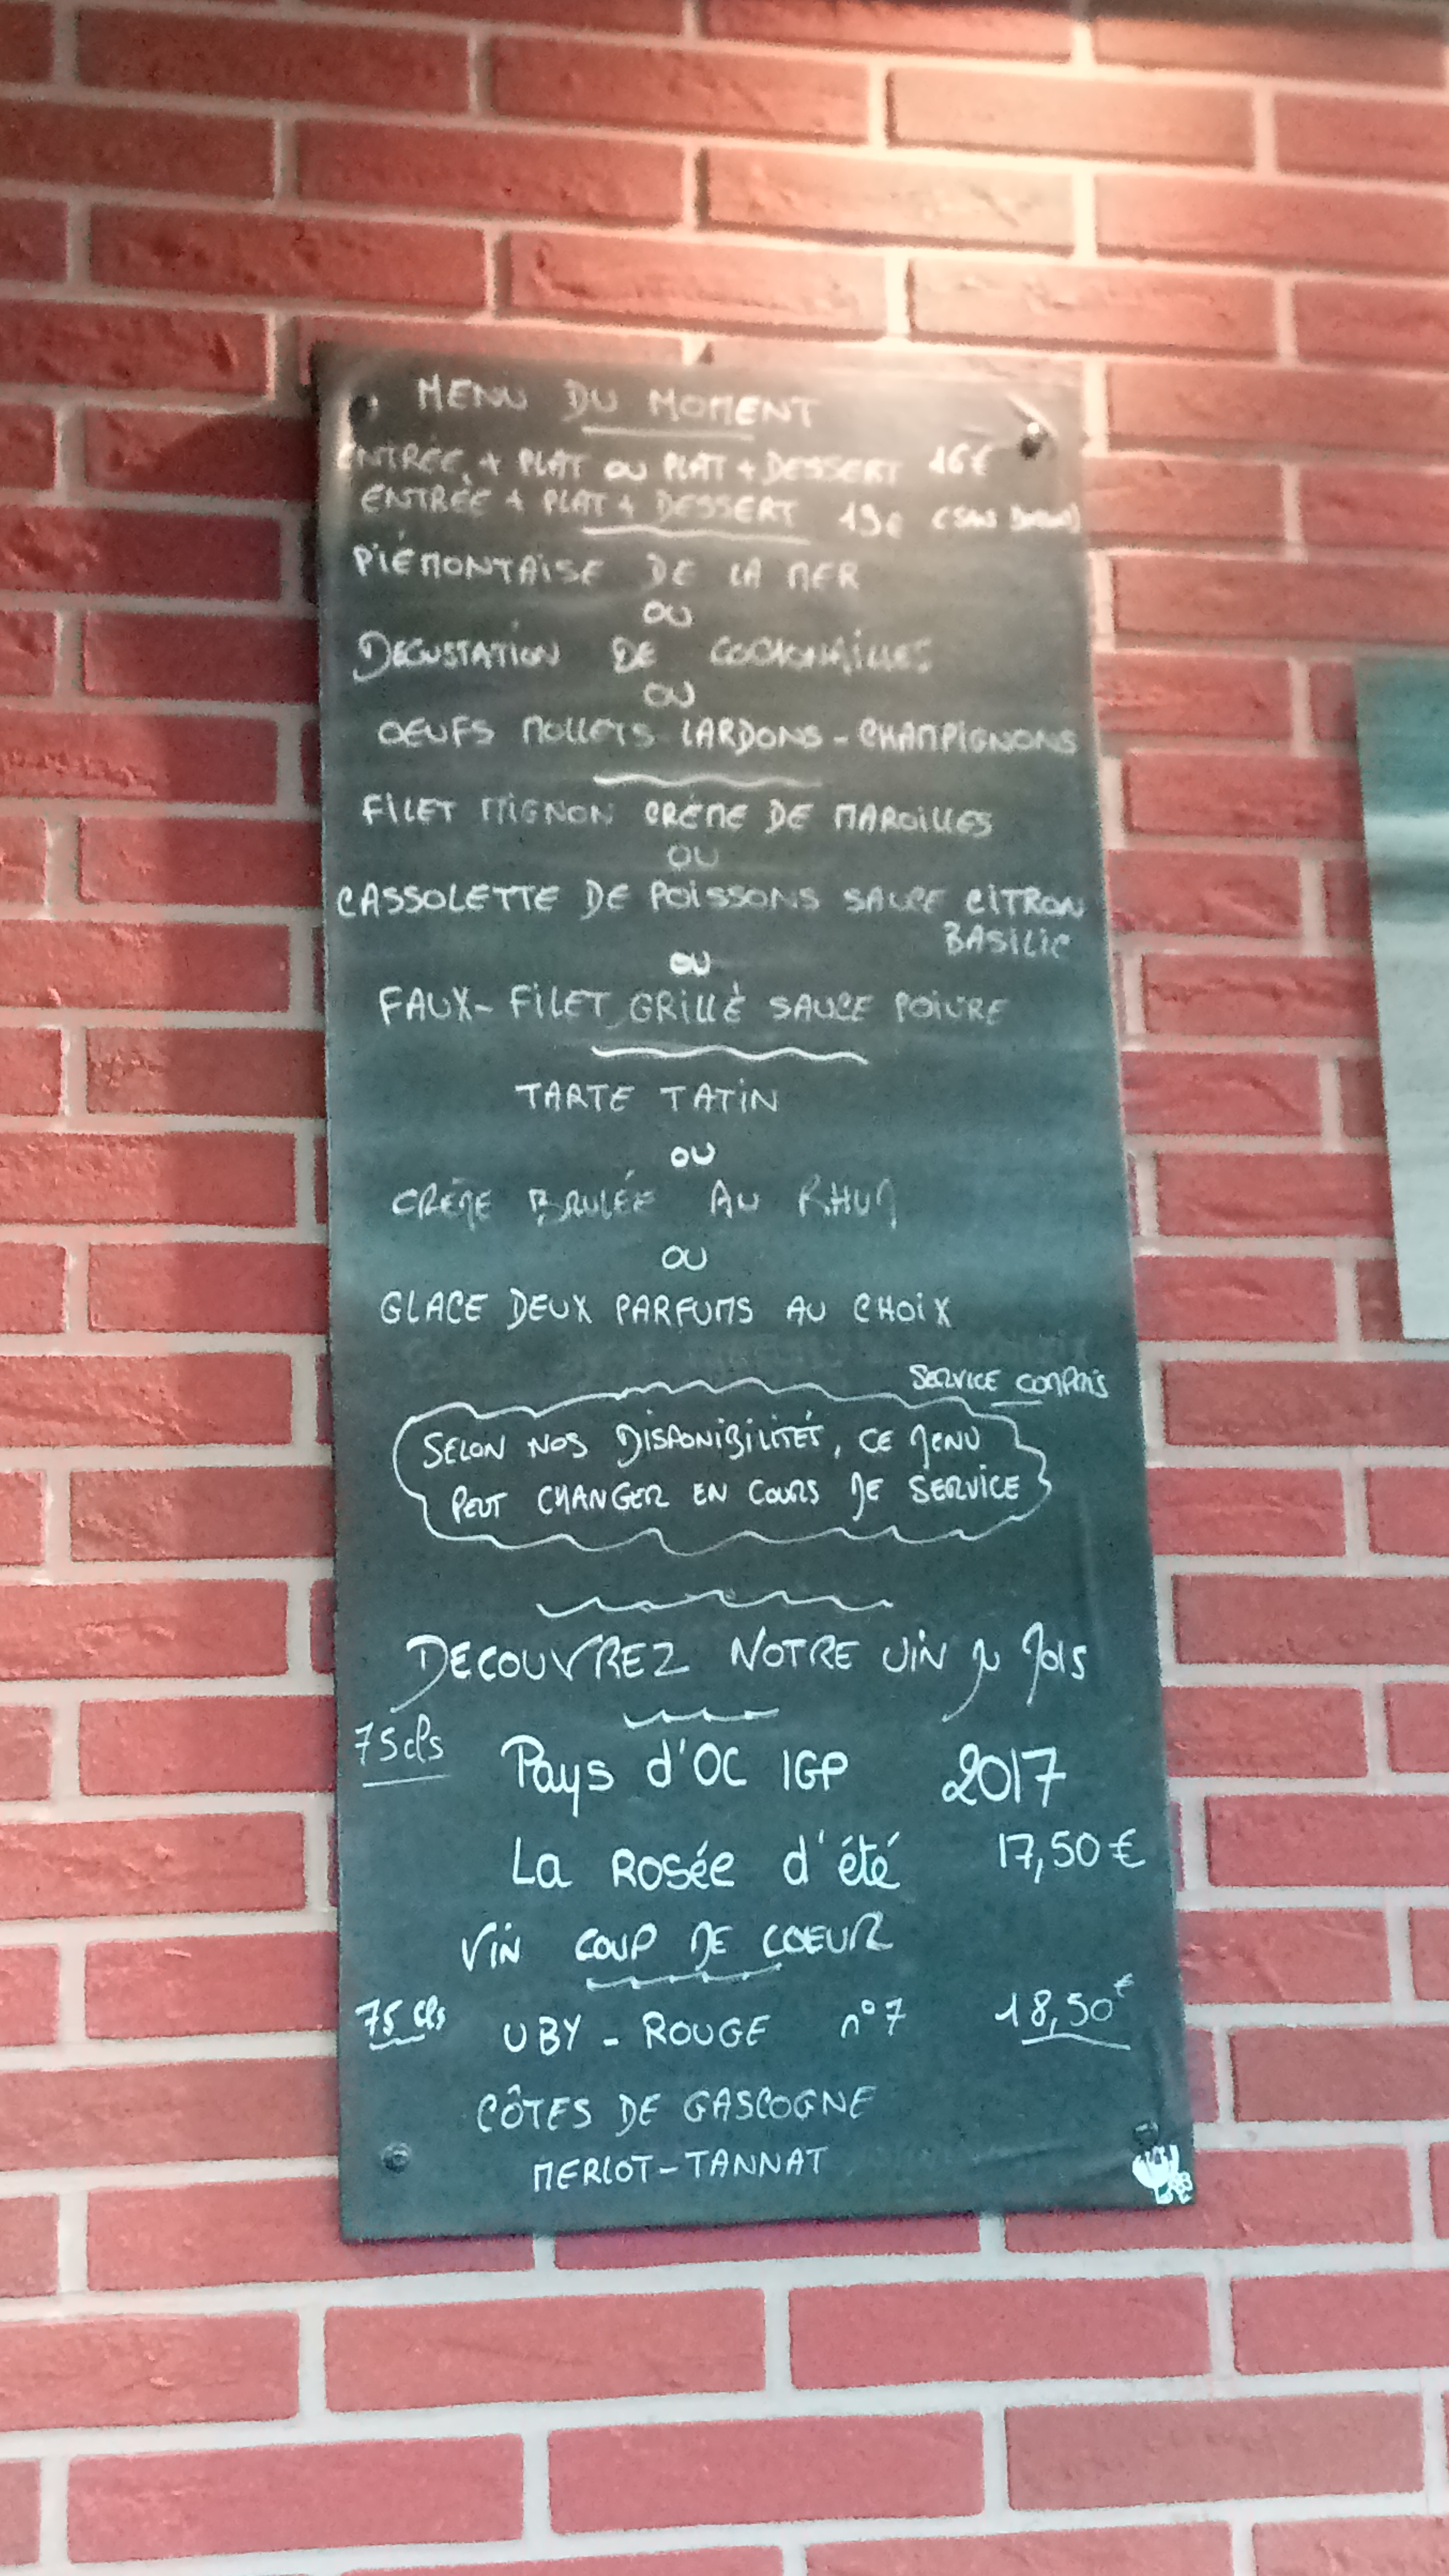 MENU DU MOMENT
ENTRÉE + PLAT OU PLAT + DESSERT 16€
ENTRÉE + PLAT + DESSERT 19€ (SANS BOISSON)
PIÉMONTAISE DE LA MER
OU
DEGUSTATION DE COCHONAILLES
OU
OEUFS MOLLETS LARDONS - CHAMPIGNONS
FILET MIGNON CRÈME DE MAROILLES
OU
CASSOLETTE DE POISSONS SAUCE CITRON
BASILIC
OU
FAUX-FILET GRILLÉ SAUCE POIVRE
TARTE TATIN
OU
CRÈME BRULÉE AU RHUM
OU
GLACE DEUX PARFUMS AU CHOIX
SERVICE COMPRIS
SELON NOS DISPONIBILITÉS, CE MENU
PEUT CHANGER EN COURS DE SERVICE
DECOUVREZ NOTRE VIN DU MOIS
75cls Pays d'OC IGP 2017
La Rosée d'été 17,50€
VIN COUP DE COEUR
75 cls UBY - ROUGE n°7 18,50€
CÔTES DE GASCOGNE
MERLOT - TANNAT